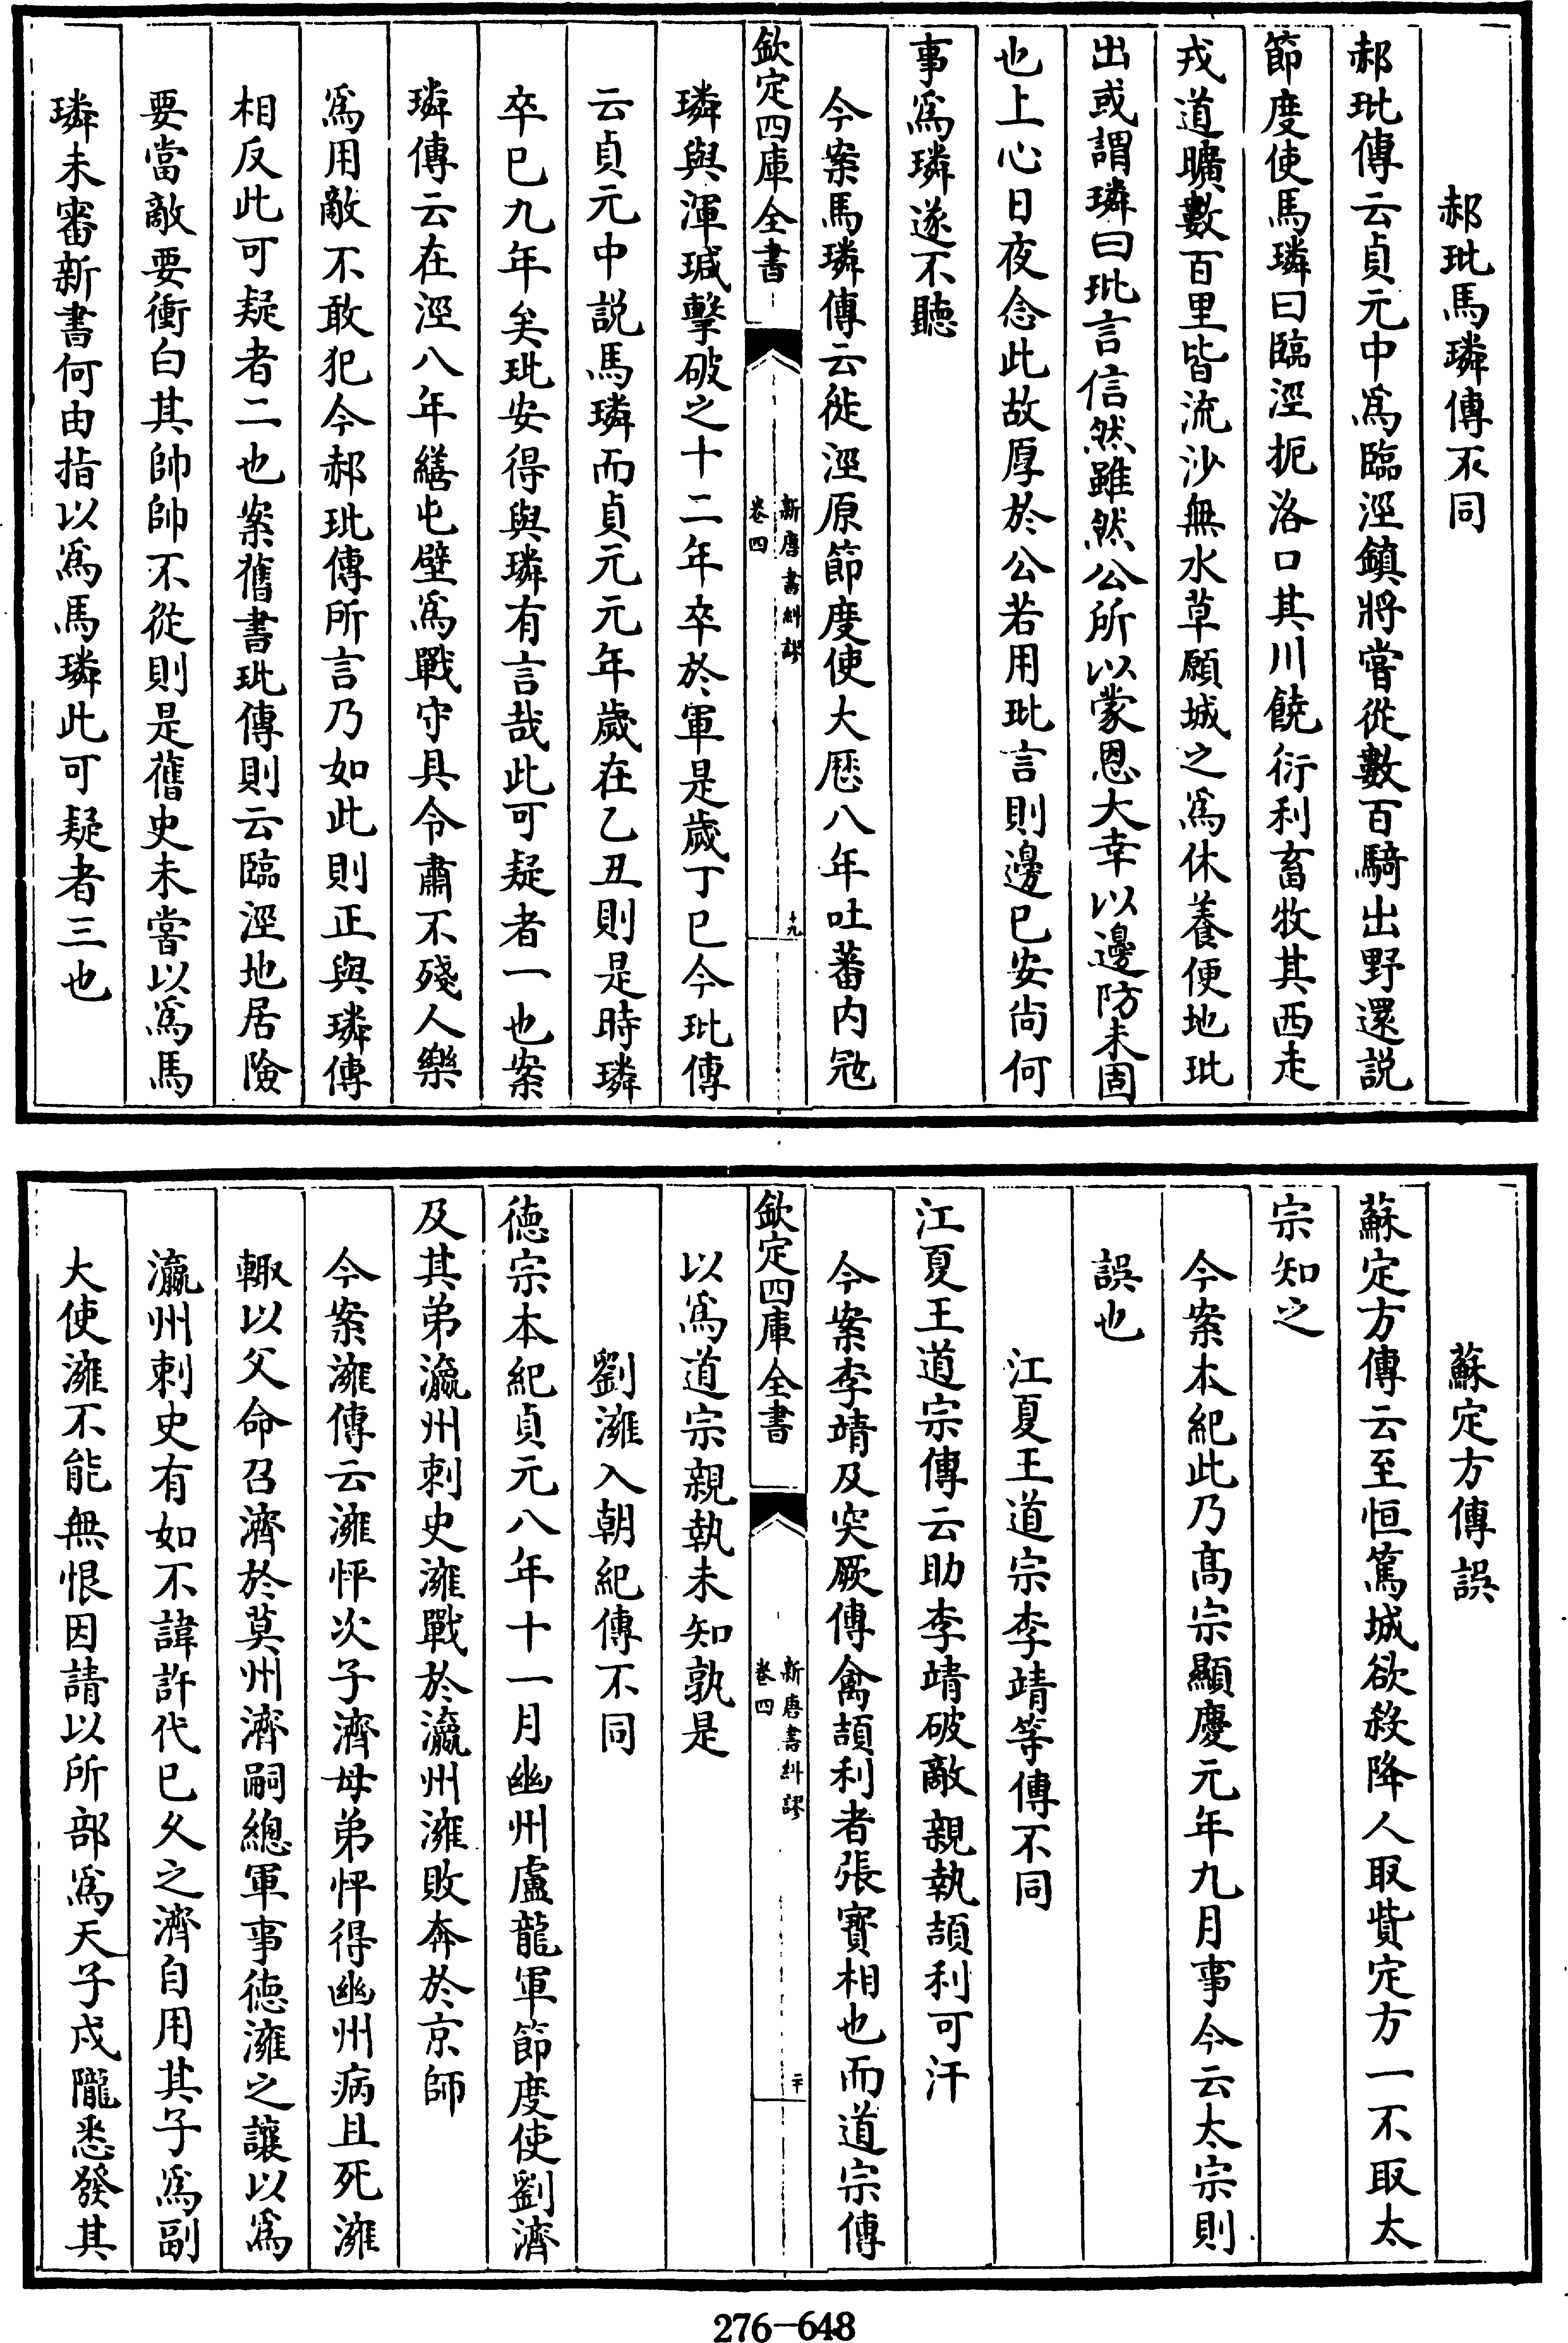 郝玭馬璘傳不同
郝玭傳云貞元中爲臨涇鎮將嘗從數百騎出野還説
節度使馬璘曰臨涇扼洛口其川饒衍利畜牧其西走
戎道曠數百里皆流沙無水草願城之爲休養便地玭
出或謂璘曰玭言信然雖然公所以蒙恩大幸以邊防未固
也上心日夜念此故厚於公若用玭言則邊已安尚何
事爲璘遂不聽
今案馬璘傳云徙涇原節度使大厯八年吐蕃内冦
欽定四庫全書
新唐書糾謬
卷四
十九
璘與渾瑊擊破之十二年卒於軍是歲丁巳今玭傳
云貞元中説馬璘而貞元元年歲在乙丑則是時璘
卒已九年矣玭安得與璘有言哉此可疑者一也案
璘傳云在涇八年繕屯壁爲戰守具令肅不殘人樂
爲用敵不敢犯今郝玭傳所言乃如此則正與璘傳
相反此可疑者二也案舊書玭傳則云臨涇地居險
要當敵要衝白其帥帥不從則是舊史未嘗以爲馬
璘未審新書何由指以爲馬璘此可疑者三也
蘇定方傳誤
蘇定方傳云至恒篤城欲殺降人取貲定方一不取太
宗知之
今案本紀此乃髙宗顯慶元年九月事今云太宗則
誤也
江夏王道宗李靖等傳不同
江夏王道宗傳云助李靖破敵親執頡利可汗
今案李靖及突厥傳禽頡利者張寳相也而道宗傳
欽定四庫全書
新唐書糾謬
卷四
二十
以爲道宗親執未知孰是
劉澭入朝紀傳不同
徳宗本紀貞元八年十一月幽州盧龍軍節度使劉濟
及其弟瀛州刺史澭戰於瀛州澭敗奔於京師
今案澭傳云澭怦次子濟母弟怦得幽州病且死澭
輙以父命召濟於莫州濟嗣總軍事徳澭之讓以爲
瀛州刺史有如不諱許代已乆之濟自用其子爲副
大使澭不能無恨因請以所部爲天子戍隴悉發其
276-648